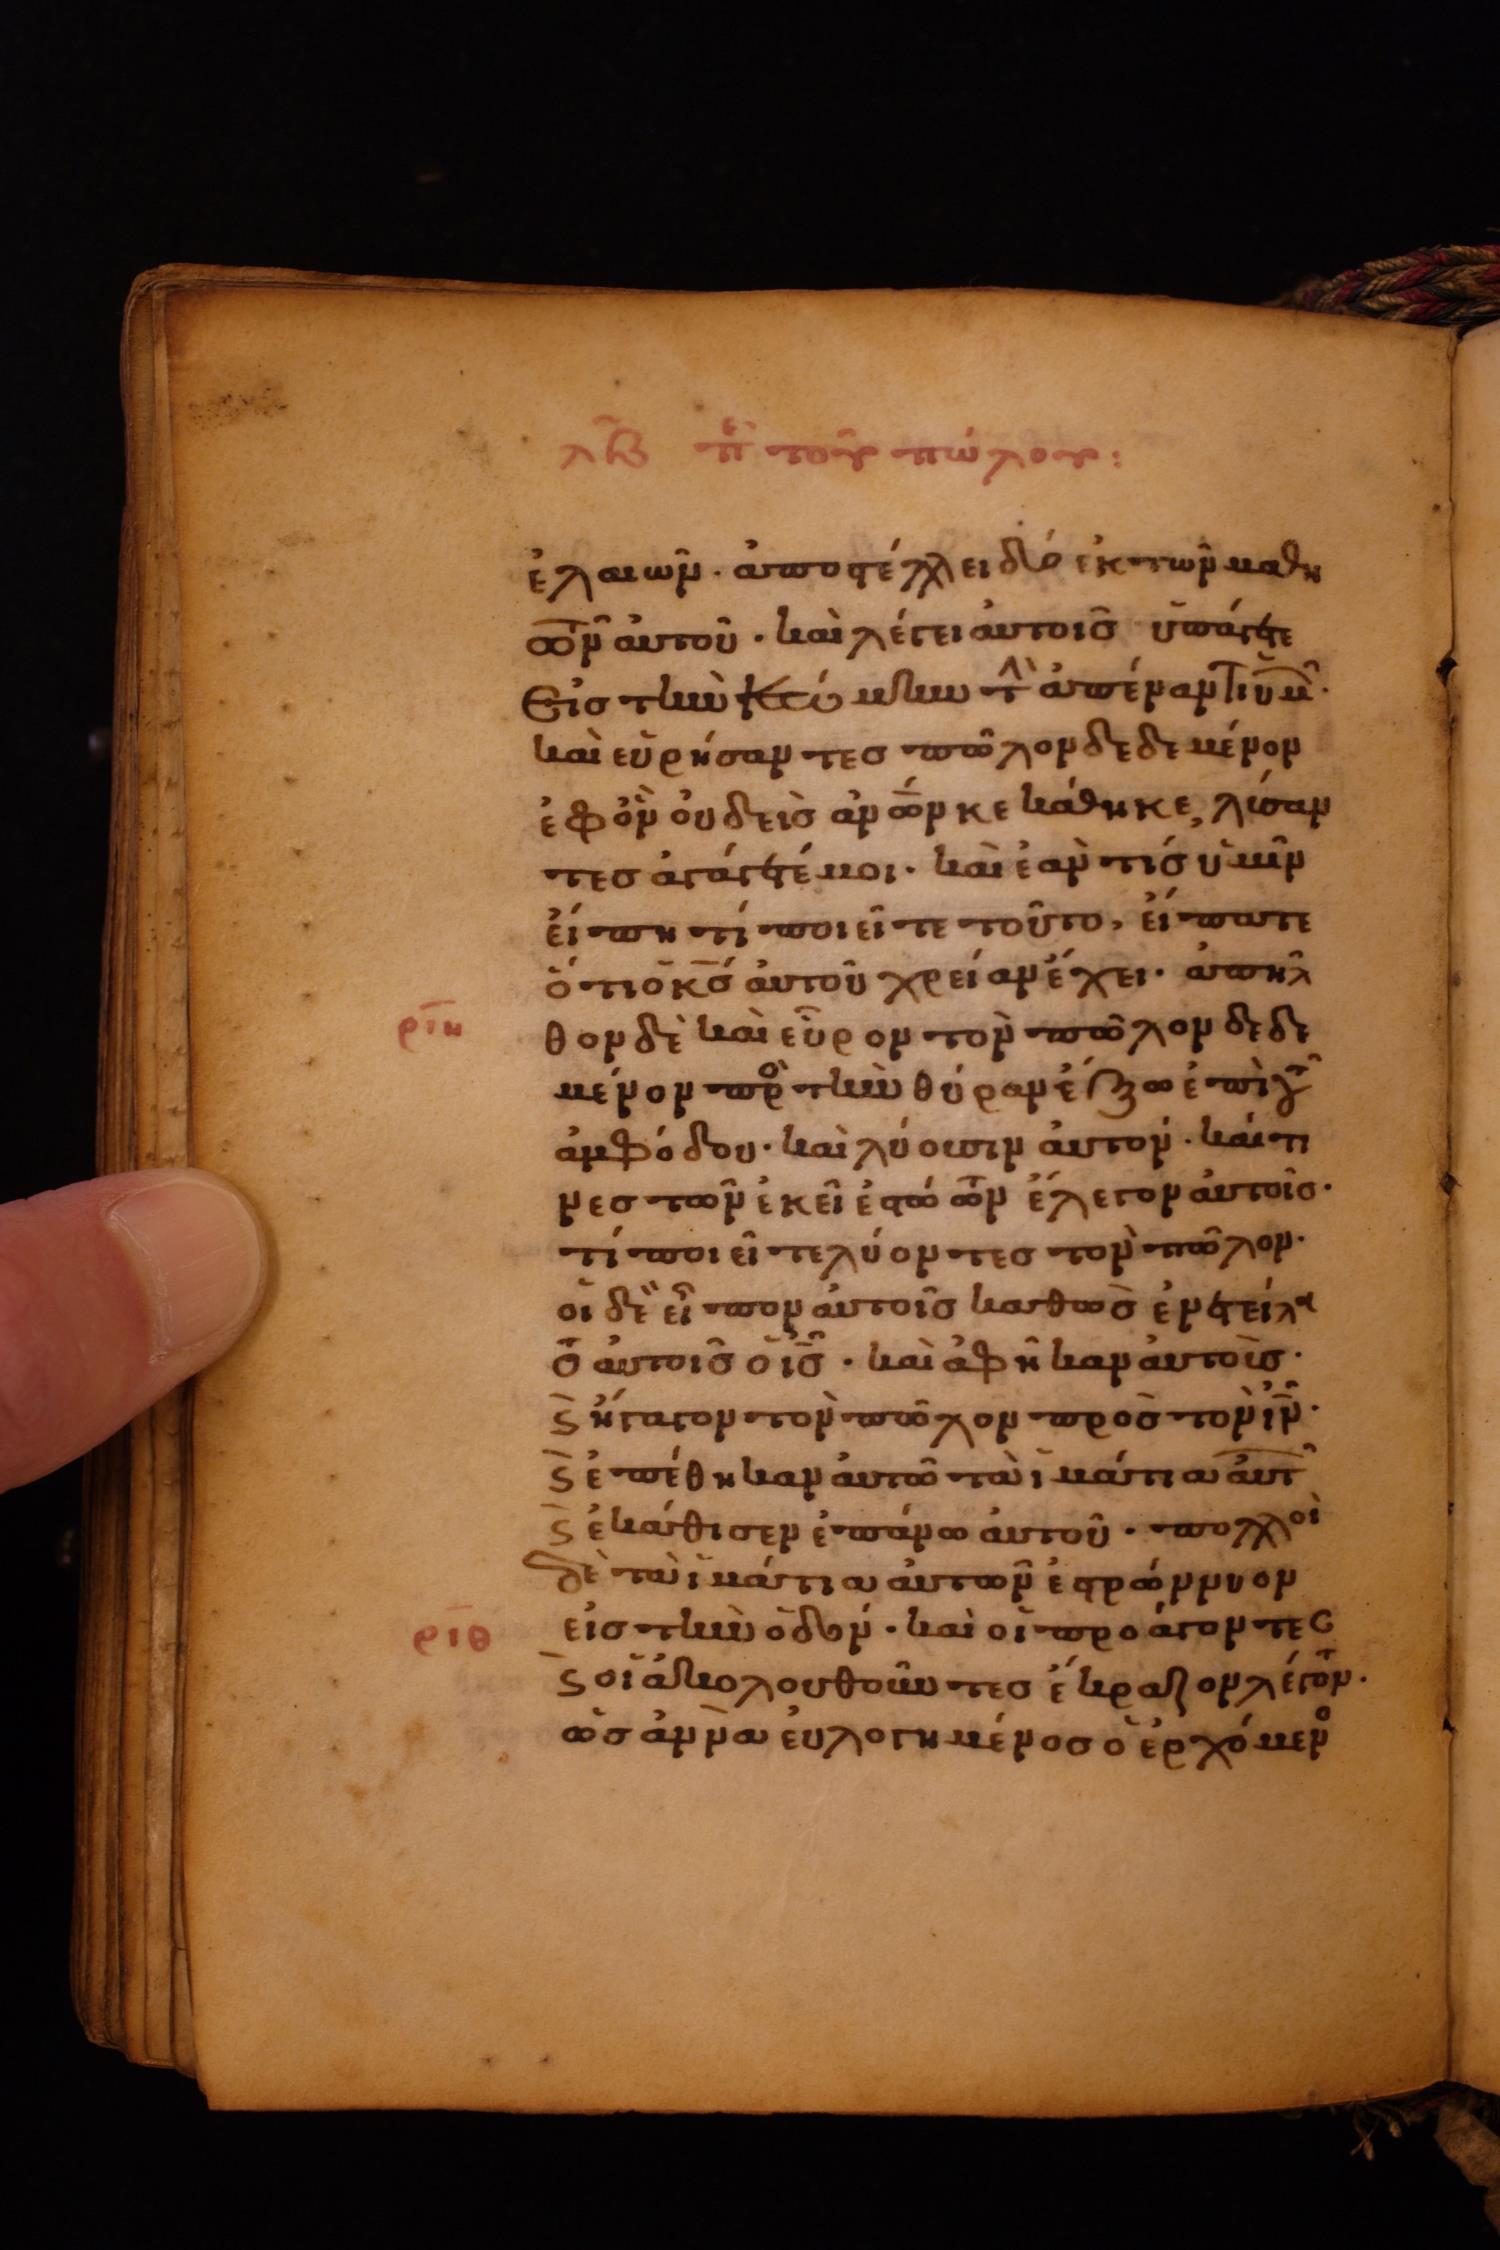 λβ πε τοῦ πώλου:
ἐλαιῶν · ἀποστέλλει δύο ἐκ τῶν μαθη
τῶν ἀυτοῦ · καὶ λέγει ἀυτοῖς ὑπάγετε
Εἰς τὴν κώμην τὴ ἀπέναντι ὑμ ·
καὶ εὑρήσαντες πῶλον δεδεμένον
ἐφ ὃν ὀυδεὶς ἀνων κεκάθηκε, λύσαν
τες ἀγάγετέ μοι · καὶ ἐάν τίς ὑμῖν
ἐίπη τί ποιεῖτε τοῦτο, ἐίπατε
ὅτι ὁ κς ἀυτοῦ χρείαν ἔχει · ἀπῆλ
ριη
θον δὲ καὶ εὗρον τὸν πῶλον δεδε
μένον προ τὴν θύραν ἔξω ἐπὶ τ
ἀμφόδου · καὶ λύουσιν ἀυτόν · καί τι
νες τῶν ἐκεῖ ἑστώτων ἔλεγον ἀυτοῖς ·
τί ποιεῖτε λύοντες τὸν πῶλον ·
οἱ δὲ εἶπον ἀυτοῖς καθὼς ἐνετείλα
το ἀυτοῖς ὁ ις · καὶ ἀφῆκαν ἀυτοὶς ·
ϗ ἤγαγον τὸν πῶλον πρὸς τὸν ιν ·
ϗ ἐπέθηκαν ἀυτῶ τὰ ἱμάτια ἀυτ
ϗ ἐκάθισεν ἐπάνω ἀυτοῦ · πολλοὶ
δὲ τὰ ἱμάτια ἀυτῶν ἐστρώννυον
ριθ
εἰς τὴν ὁδόν · καὶ οἱ προάγοντες
ϗ οἱ ἀκολουθοῦντες ἔκραζον λέγον ·
ὡσ ἀννὰ ἐυλογημένος ὁ ἐρχόμενο